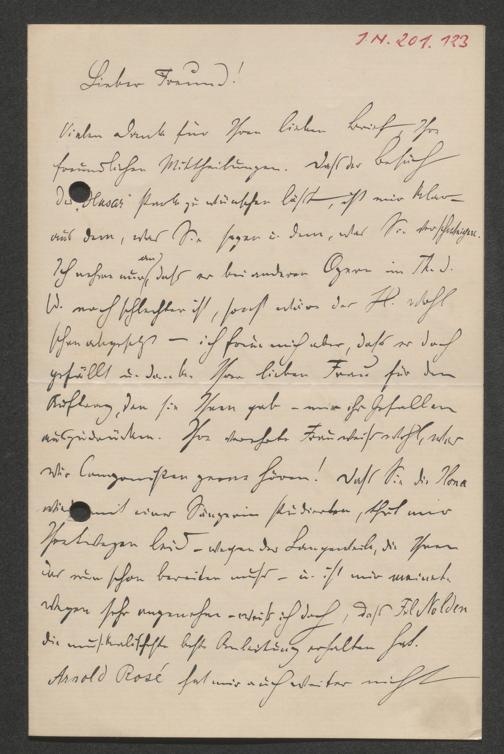 I.N. 201.123
Lieber Freund!
Vielen Dank für Ihren lieben Brief, Ihre
freundlichen Mittheilungen. Daß der Besuch
des "Husar" stark zu wünschen läßt, ist mir klar –
aus dem, was Sie sagen u. dem, was Sie verschweigen.
Ich nehme nur an, daß er bei anderen Opern im Th. d.
W. noch schlechter ist, sonst wäre der H. wohl
schon abgesetzt – ich freue mich aber, daß er doch
gefällt u. danke Ihrer lieben Frau für den
Auftrag, den sie Ihnen gab – mir ihr Gefallen
auszudrücken. Ihre verehrte Frau weiß wohl, was
wir Componisten gerne hören! Daß Sie die Ilona
wieder mit einer Sängerin studierten, thut mir
Ihretwegen leid – wegen der Langenweile, die Ihnen
das nun schon bereiten muß – u. ist mir meinet-
wegen sehr angenehm – weiß ich doch, daß Frl Nolden
die musikalischste beste Anleitung erhalten hat.
Arnold Rosé hat mir auch weiter nicht